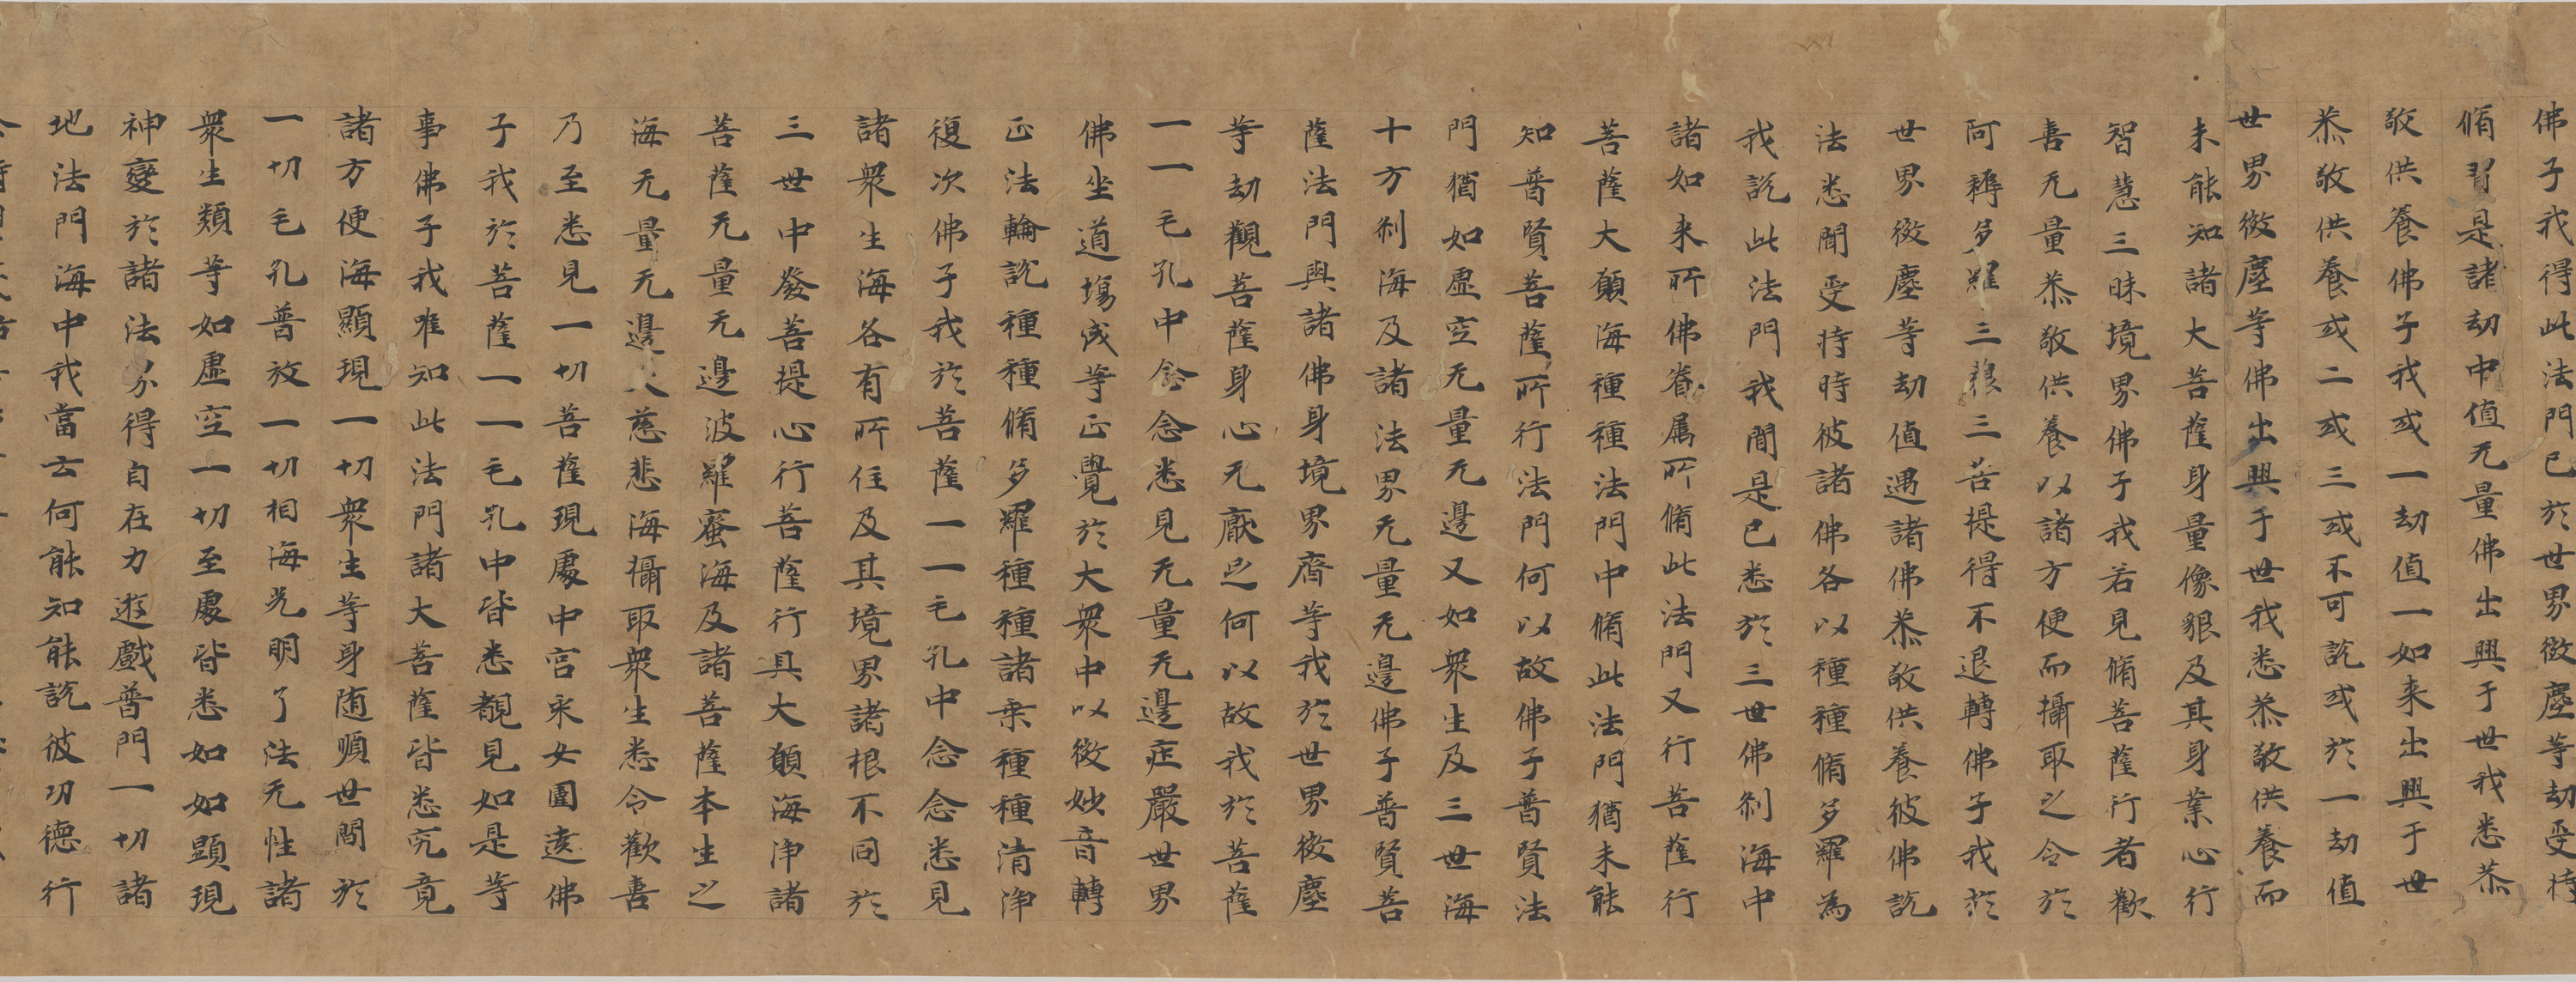 佛子我得此法門已於世界微塵等劫受持
脩習是諸劫中值无量佛出興于世我悉恭
敬供養佛子我或一劫值一如来出興于世
恭敬供養或二或三或不可說或於一劫值
世界微塵等佛出興于世我悉恭敬供養而
未能知諸大菩薩身量像貇及其身業心行
智慧三昧境界佛子我若見脩菩薩行者歡
喜无量恭敬供養以諸方便而攝取之令於
阿耨多羅三藐三菩提得不退轉佛子我於
世界微塵等劫值遇諸佛恭敬供養彼佛說
法悉聞受持時彼諸佛各以種種脩多羅為
我說此法門我聞是已悉於三世佛剎海中
諸如来所佛眷属所脩此法門又行菩薩行
菩薩大願海種種法門中脩此法門猶未能
知普賢菩薩所行法門何以故佛子普賢法
門猶如虛空无量无邊又如衆生及三世海
十方剎海及諸法界无量无邊佛子普賢菩
薩法門與諸佛身境界齊等我於世界微塵
等劫觀菩薩身心无厭足何以故我於菩薩
一一毛孔中念念悉見无量无邊莊嚴世界
佛坐道場成等正覺於大衆中以微妙音轉
正法輪說種種脩多羅種種諸乗種種清淨
復次佛子我於菩薩一一毛孔中念念悉見
諸衆生海各有所住及其境界諸根不同於
三世中發菩提心行菩薩行具大願海淨諸
菩薩无量无邊波羅蜜海及諸菩薩本生之
海无量无邊大慈悲海攝取衆生悉令歡喜
乃至悉見一切菩薩現處中宮采女圍遶佛
子我於菩薩一一毛孔中皆悉覩見如是等
事佛子我唯知此法門諸大菩薩皆悉究竟
諸方便海顯現一切衆生等身随順世間於
一切毛孔普放一切相海光明了法无性諸
衆生類等如虛空一切至處皆悉如如顯現
神變於諸法界得自在力遊戲普門一切諸
地法門海中我當云何能知能說彼功德行